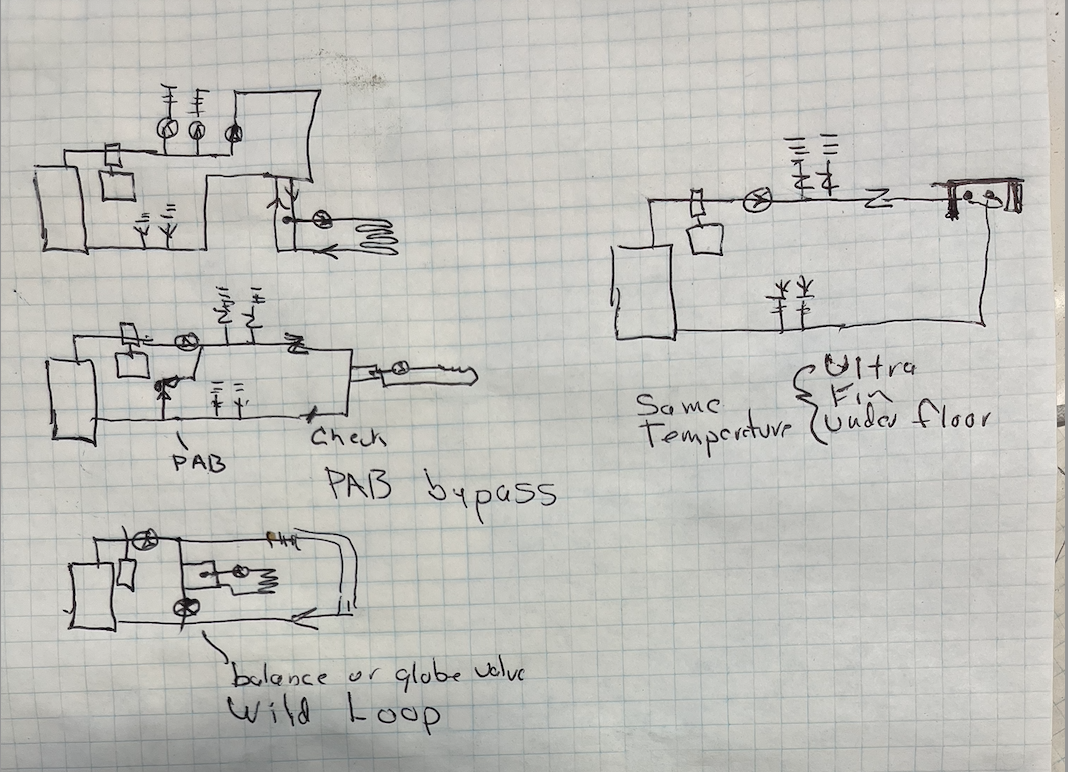 PAB
Check
PAB bypass
balance or globe valve
Wild Loop
Same
Temperature
Ultra
Fin
Under floor